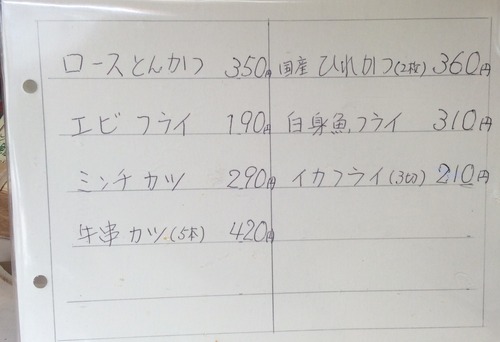 ロースとんかつ 350円
エビフライ 190円
ミンチカツ 290円
牛串カツ(5本) 420円
国産ひれかつ(2枚) 360円
白身魚フライ 310円
イカフライ(3切) 210円